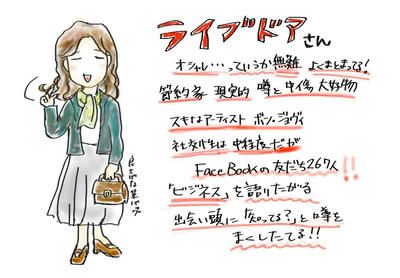 ライブドアさん
オシャレ…っていうか無難 よくまとまってる!
節約家 現実的 噂と中傷大好物
スキなアーティスト ボン・ジョヴィ
社交性は中程度だが
FaceBookの友だち267人!!
「ビジネス」を語りたがる
出会い頭に「知ってる?」と噂を
まくしたてる!!
良さげな革バッグ